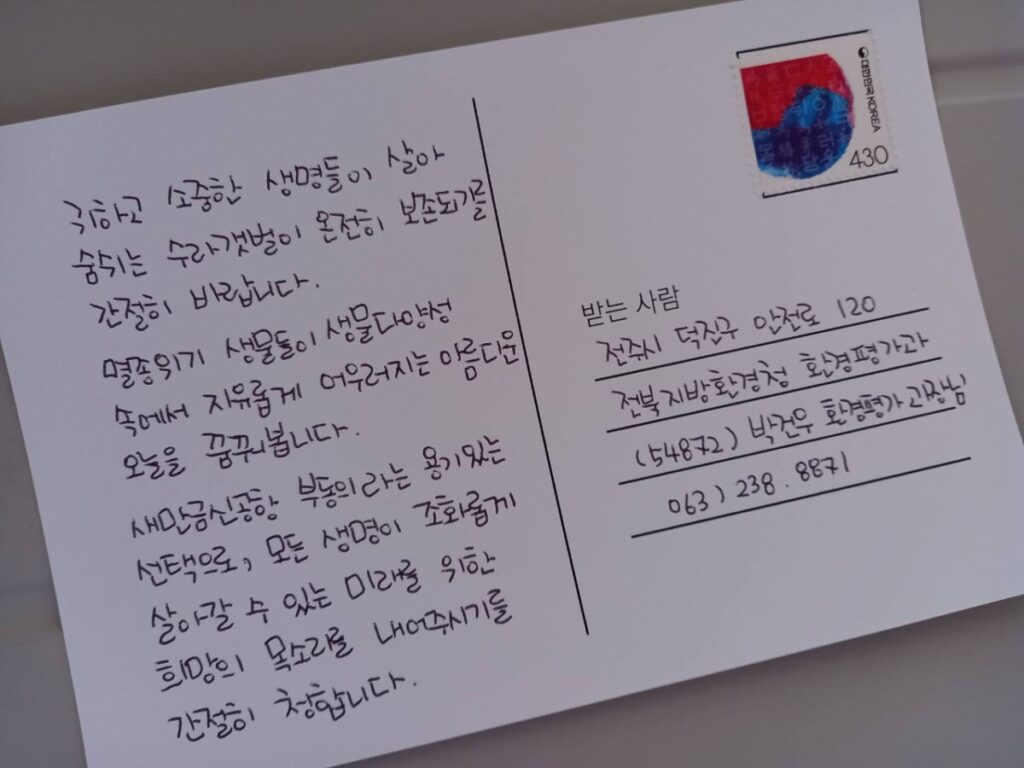 귀하고 소중한 생명들이 살아
숨쉬는 수라갯벌이 온전히 보존되기를
간절히 바랍니다.
멸종위기 생물들이 생물다양성
속에서 자유롭게 어우러지는 아름다운
오늘을 꿈꿔봅니다.
새만금신공항 부동의라는 용기있는
선택으로, 모든 생명이 조화롭게
살아갈 수 있는 미래를 위한
희망의 목소리를 내어주시기를
간절히 청합니다.
대한민국 KOREA
430
받는 사람
전주시 덕진구 안전로 120
전북지방환경청 환경평가과
(54872) 박건우 환경평가과장님
063) 238. 8871